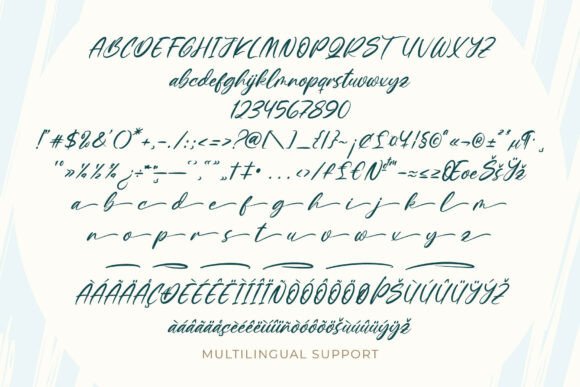 ABCDEFGHIJKLMNOPQRSTUVWXYZ
abcdefghijklmnopqrstuvwxyz
1234567890
!"#$%&'()*+,-./:;<=>?@[\]_{|}~¡¢£¤¥¦§©ª«¬®±²³µ¶·¸
¹º»¼½¾¿÷–—‘’‚“”„†‡•…‹›⁄₤€№™−≈≤≥ŒœŠšŸž
a b c d e f g h i j k l m
n o p r s t u v w x y z
ÀÁÂÃÄÅÇÐÈÉÊËÌÍÎÏÑÒÓÔÕÖØÞŠÙÚÛÜŸÝŽ
àáâãäåçèéêëìíîïñòóôõöšùúûüýÿž
MULTILINGUAL SUPPORT